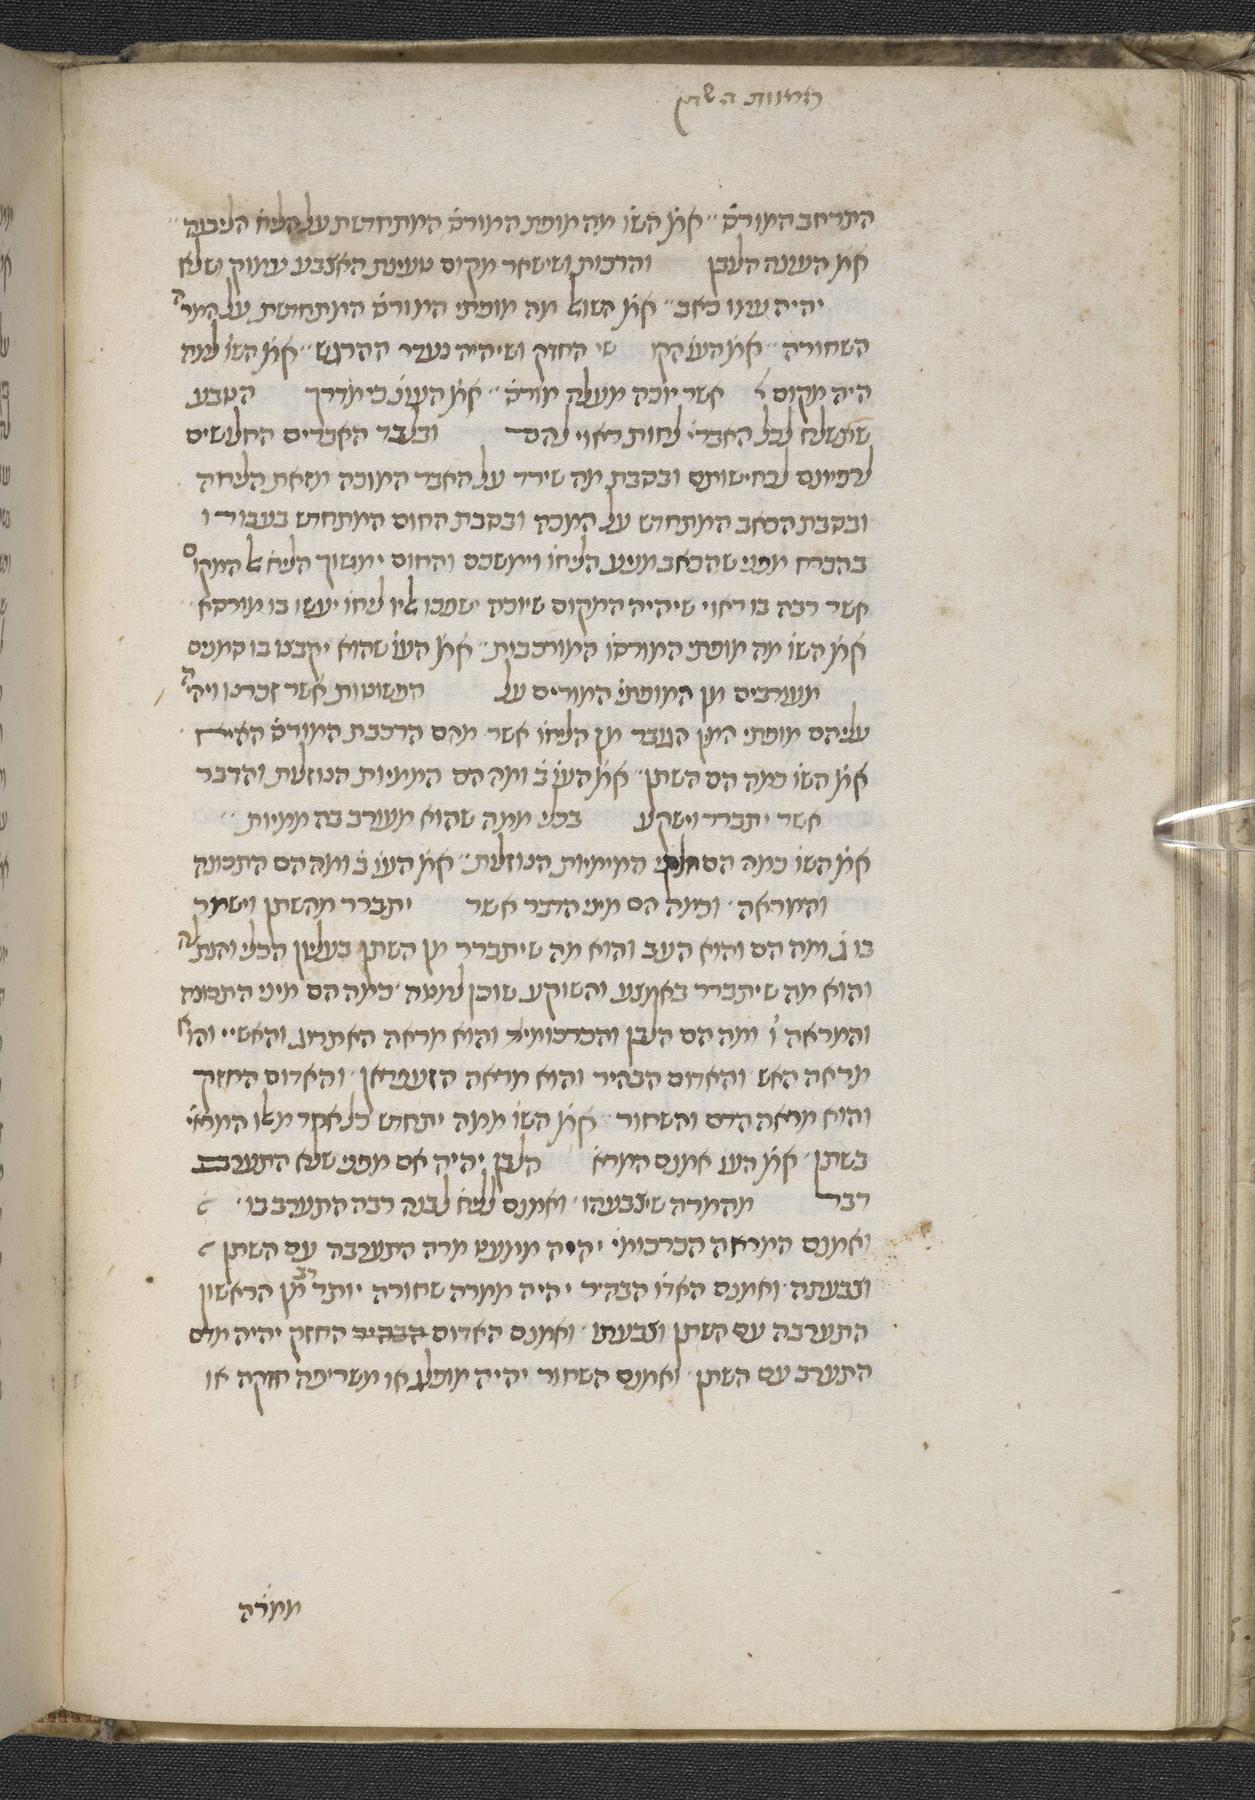 מראות השתן
התרחב המורס׳ ׳׳ אמ׳ השו׳ מה מופת המורס׳ המתחדשת על הליח׳ הלבנה ׳׳
אמ׳ העונה הלבן והרכות ושישאר מקום טעינת האצבע עמוק ושלא
יהיה עמו כאב ׳׳ אמ׳ השוא׳ מה מופתי המורס׳ המתחדשת על המר׳ה
השחורה ׳׳ אמ׳ העו׳ הקו שי החזק ושיהיה נעדר ההרגש ׳׳ אמ׳ השו׳ למה
היה מקום אשר יוכה מעלה מורס׳ ׳׳ אמ׳ העו׳ כי מדרך הטבע
שישלח לכל האברי׳ לחות ראוי להם ובלבד האברים החלושים
לרפיונם לחישותם ובסבת מה שירד על האבר המוכה מזאת הליחה
ובסבת הכאב המתחדש על המכה ובסבת החום המתחדש בעבור ו
בהכרח מפני שהכאב מניע הליחו׳ וימשכם והחום ימשוך הליח׳ אל המקום
אשר רבה בו ראוי שיהיה המקום שיוכה ישפכו אליו ליחו׳ יעשו בו מורסא
אמ׳ השו׳ מה מופתי המורסו׳ המורכבות ׳׳ אמ׳ העו׳ שהוא יקבצו בו סמנים
מעורבים מן המופתי׳ המורים על הפשוטות אשר זכרנו ויהי׳ה
עליהם מופתי המין הגובר מן הליחו׳ אשר מהם הרכבת המורס׳ האי׳
אמ׳ השו׳ כמה הם השתן ׳׳ אמ׳ העו׳ ב׳ ומה הם המימיות הנוזלת והדבר
אשר יתברר וישקע בכלי ממה שהוא מעורב בה ממיות ׳׳
אמ׳ השו׳ כמה הם חלקי המימיות הנוזלת ׳׳ אמ׳ העו׳ ב׳ ומה הם התכונה
והמראה ׳ וכמה הם מיני הדבר אשר יתברר מהשתן וישתר
בו ג׳ ומה הם והוא העב והוא מה שיתברר מן השתן בעליון הכלי והנתלה
והוא מה שיתברר באמצע והשוקע שוכן למטה ׳ כמה הם מיני התכונה
והמראה ו׳ ומה הם הלבן והכרכומי׳ והוא מראה האתרוג והאשיי והוא
מראה האש והאדום הבהיר והוא מראה הזעפראן ׳ והאדום החזק
והוא מראה הדם והשחור ׳ אמ׳ השו׳ ממה יתחדש כל אחד מאלו המרא׳
בשתן ׳ אמ׳ העו׳ אמנם המרא׳ הלבן יהיה אם מפני שלא התערב
דבר מהמרה שיצבעהו ׳ ואמנם ליח׳ לבנה רבה התערב בו ׳
ואמנם המראה הכרכומי יהיה ממעט מרה התערבה עם השתן
וצבעתהו ׳ ואמנם האדו׳ הבהיר יהיה ממרה שחורה יותר רב מן הראשון
התערבה עם השתן וצבעתו ׳ ואמנם האדום הבהיר החזק יהיה מדם
התערב עם השתן ׳ ואמנם השחור יהיה מופלג או משריפה חזקה או
ממרה